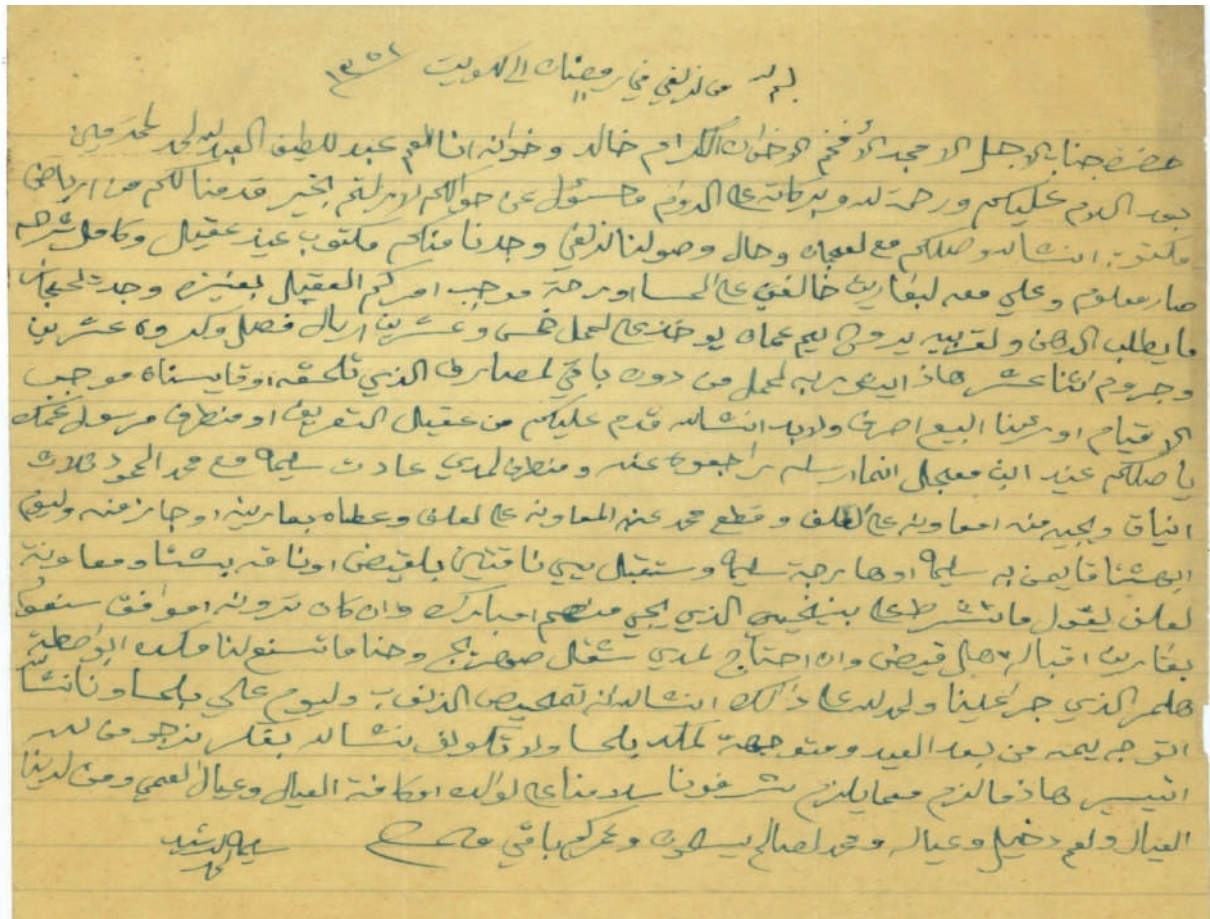 بسم الله من لزلفي في رمضان الى لكويت ١٣٥٢
حضرة جناب الاجل الامجد الأفخم الاخوان الكرام خالد وخوانه انا لعم عبد للطيف العبد لله لحمد لمحترمين
بعد السلام عليكم ورحمة لله وبركاته على الدوام ومسئول عن حوالكم لازلتم بخير قدمنا لكم من الرياض
مكتوب انشالله وصلكم مع لعجمان وحال وصولنا لزلفي وجدنا منكم مكتوب عيند عقيل وكامل شرحه
صار معلوم وعلي معه لبفارين خالفن على الحسا او رحة موجب امركم العقيل بعنيزه وجدت لحجاز
ما يطلب الدهن ولقريبه يدورون لعماه يوخذ على لحمل خمس وعشرين اريال فصل وكدروه عشرين
وجروم اثنا عشر هاذ ايضربه لمحمل من دون باقي لمصارف الذي تلحقه اوقايسناه موجب
الاقيام اورئينا البيع اصرف ولابد انشالله قدم عليكم من عقيل التعريف او منطرف مرسول عمك
ياصلكم عيند ابن معجل انما ارسله راجعوه عنه ومنطرف لمدي عادت سليمه مع محمد الحمود ثلاث
انياق ويجيه منه امعاونه على لعلف وقطع محمد عنه المعاونه على لعلف وعطاه بعارينه اوجاز منه وليوم
الهشتا قايمن به سليمه اوهارجة سليمه وستقبل يبي ناقتين بلقيض اوناقه بشتا ومعاونة
لعلف يقول مانشرط على بنيخيي الذي يجي منهم امبارك وان كان ترونه اموافق سنعوا
بعارين اقباله هل قيض وان احتاج لمدي شغل صهريج وحنا ماتسنع لنا مكده ابواصطة
هلمر الذي جرا علينا ولحمد لله على ذالك انشالله انه تمحيص الذنوب وليوم علي بلحسا وناانشا
التوجه ليمه من بعد العيد ومتوجهة لمكده بلحسا ولا تكولف نشالله بفكر نرجو من لله
التيسير هاذ مالزم معمايلزم شرفونا سلامنا على لوالد اوكافة العيال وعيال العمي ومن لدينا
العيال ولعم دخيل وعياله ومحمد لصالح يسلمون وعمركم باقي والسلام